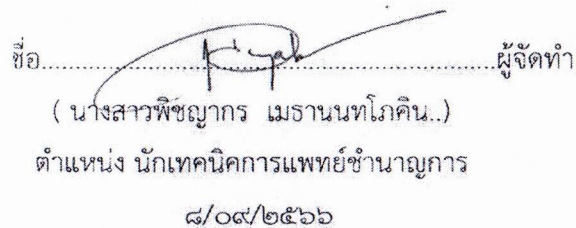 ชื่อ........................................................ผู้จัดทำ
( นางสาวพิชญากร เมธานนทโภคิน..)
ตำแหน่ง นักเทคนิคการแพทย์ชำนาญการ
๘/๐๙/๒๕๖๖